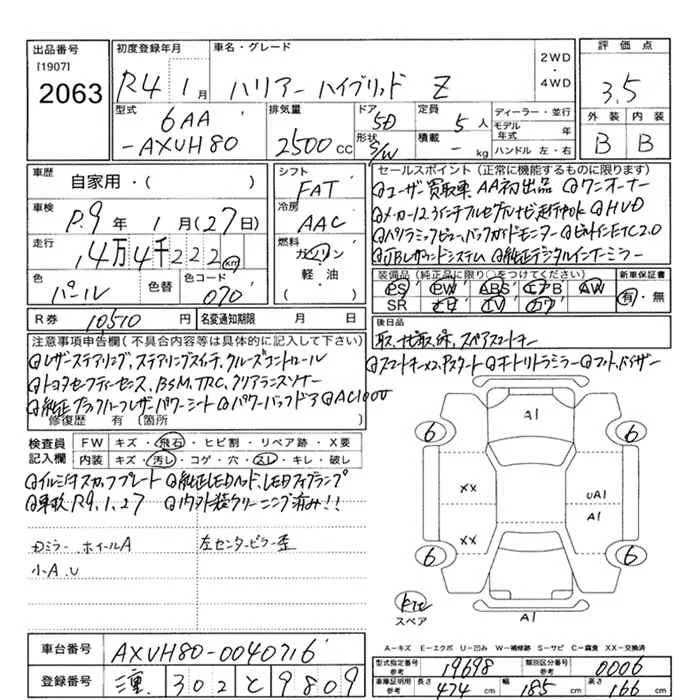 出品番号 初度登録年月 車名・グレード 2WD・4WD 評価点
[1907]
2063
R4 1月 ハリアー ハイブリッド Z 3.5
型式 排気量 ドア 定員 ディーラー・並行 外装 内装
6AA 5D 5人 モデル年式 年
-AXUH80 2500cc 形状 S/W 積載 - kg ハンドル 左・右 B B
車歴 自家用・( ) シフト FAT
セールスポイント(正常に機能するものに限ります)
@ユーザー買取車 AA初出品 @ワンオーナー
車検 R.9年 1月(27日) 冷房 AAC
@メーカー12.3インチフルセグナビ走行中OK @HUD
@パノラミックビュー、バックガイドモニター @ビルトインETC2.0
走行 14万4千222km 燃料 ガソリン・軽・油
@JBLサウンドシステム @純正デジタルインナーミラー
装備品(純正品に限り○をつけてください) 新車保証書
色 パール 色替 色コード 070
PS PW ABS エアB AW 有・無
SR ナビ TV カワ
R券 10510円 名変通知期限 月 日
後日品
取、ナビ取、保、スペアスマートキー
注意事項申告欄(不具合内容等は具体的に記入して下さい)
@レザーステアリング、ステアリングスイッチ、クルーズコントロール
@スマートキー×2、Pスタート @オートリトラミラー @フロアM、バイザー
@トヨタセーフティーセンス、BSM、TRC、クリアランスソナー
@純正ブラックハーフレザーパワーシート @パワーバックドア @AC100V
修復歴 有 〔箇所 〕
検査員記入欄 FW キズ・飛石・ヒビ割・リペア跡・X要
内装 キズ・汚レ・コゲ・穴・スレ・キレ・破し
@イルミスカッフプレート @純正LEDヘッド、LEDフォグランプ
@車検R9.1.27 @内外装クリーニング済み!!
ミラー、ホイールA 左センターピラー歪
小A.U
A1
6 6
XX UA1
A1
XX
6 6
スペア
A1
A-キズ E-エクボ U-凹み W-補修跡 S-サビ C-腐食 XX-交換済
車台番号 AXUH80-0040716
型式指定番号 参考 19698 類別区分番号 参考 0006
登録番号 302 と 9809
車庫証明用 参考 長さ 474cm 幅 185cm 高さ 166cm